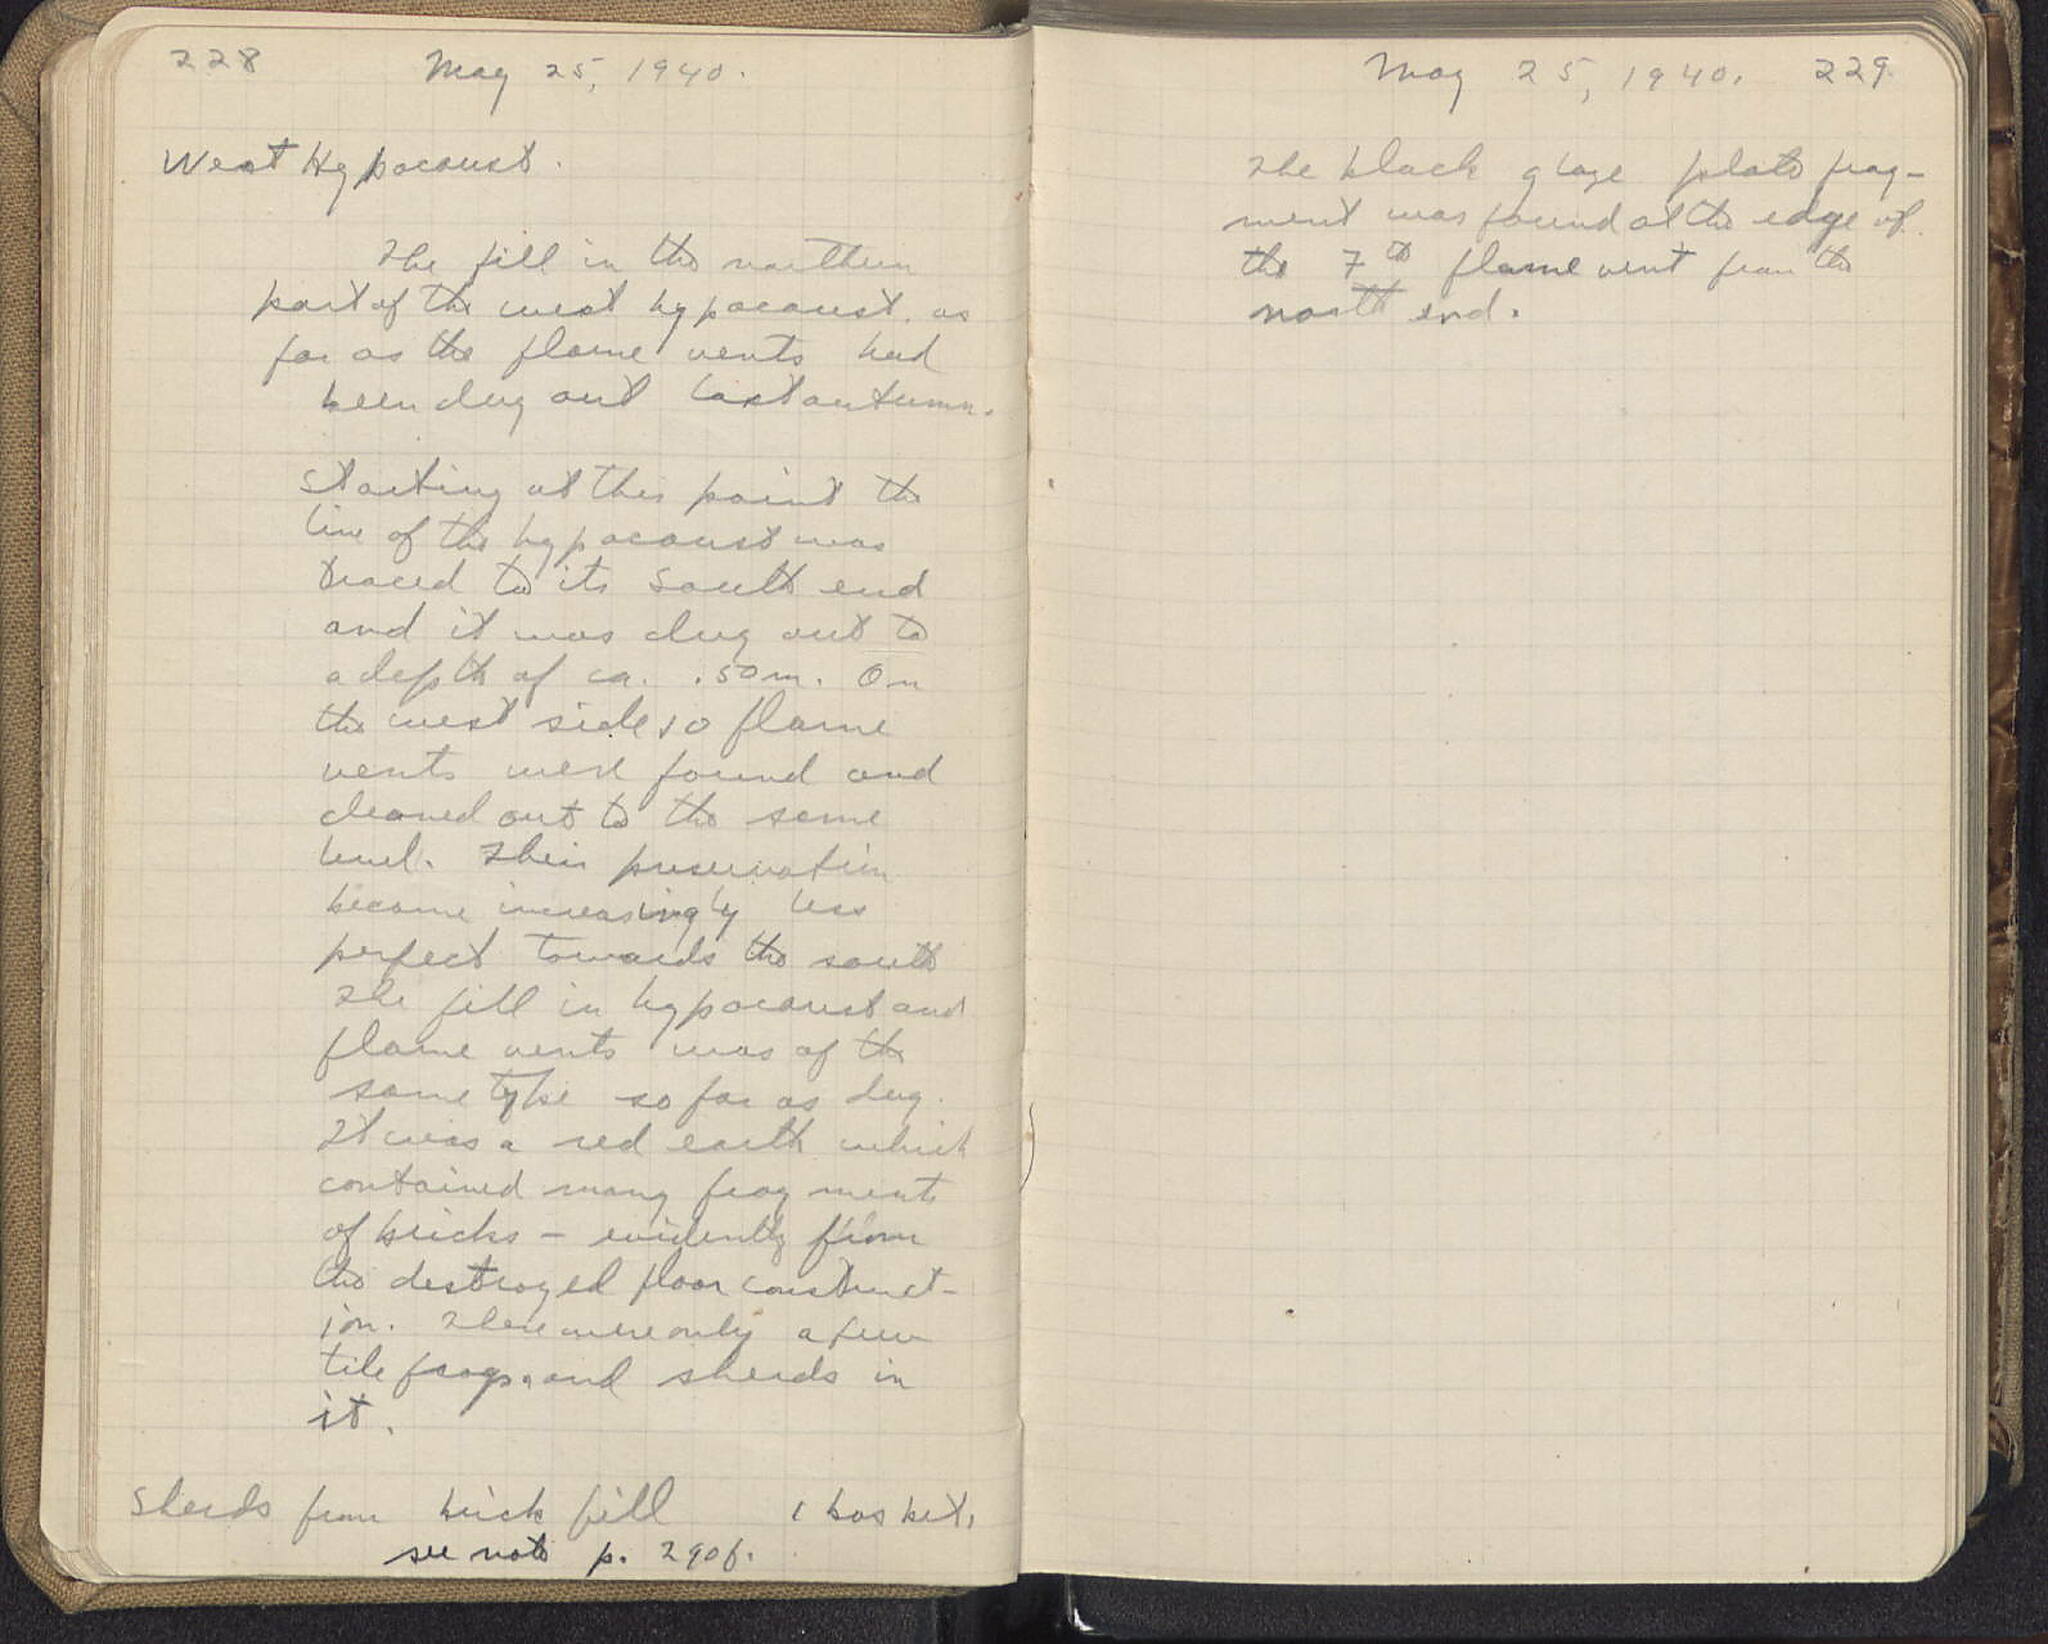 228 May 25, 1940.
West Hypocaust.
The fill in the northern
part of the west hypocaust as
far as the flame vents had
been dug out last autumn.
Starting at this point the
line of the hypocaust was
traced to its south end
and it was dug out to
a depth of ca. .50 m. On
the west side 10 flame
vents were found and
cleaned out to the same
level. Their preservation
became increasingly less
perfect towards the south
The fill in hypocaust and
flame vents was of the
same type so far as dug.
It was a red earth which
contained many fragments
of bricks – evidently from
the destroyed floor construct-
ion. There were only a few
tile frags. and sherds in
it.
Sherds from brick fill 1 basket.
see note p. 290f.
May 25, 1940. 229
The black glaze plate frag-
ment was found at the edge of
the 7th flame vent from the
north end.